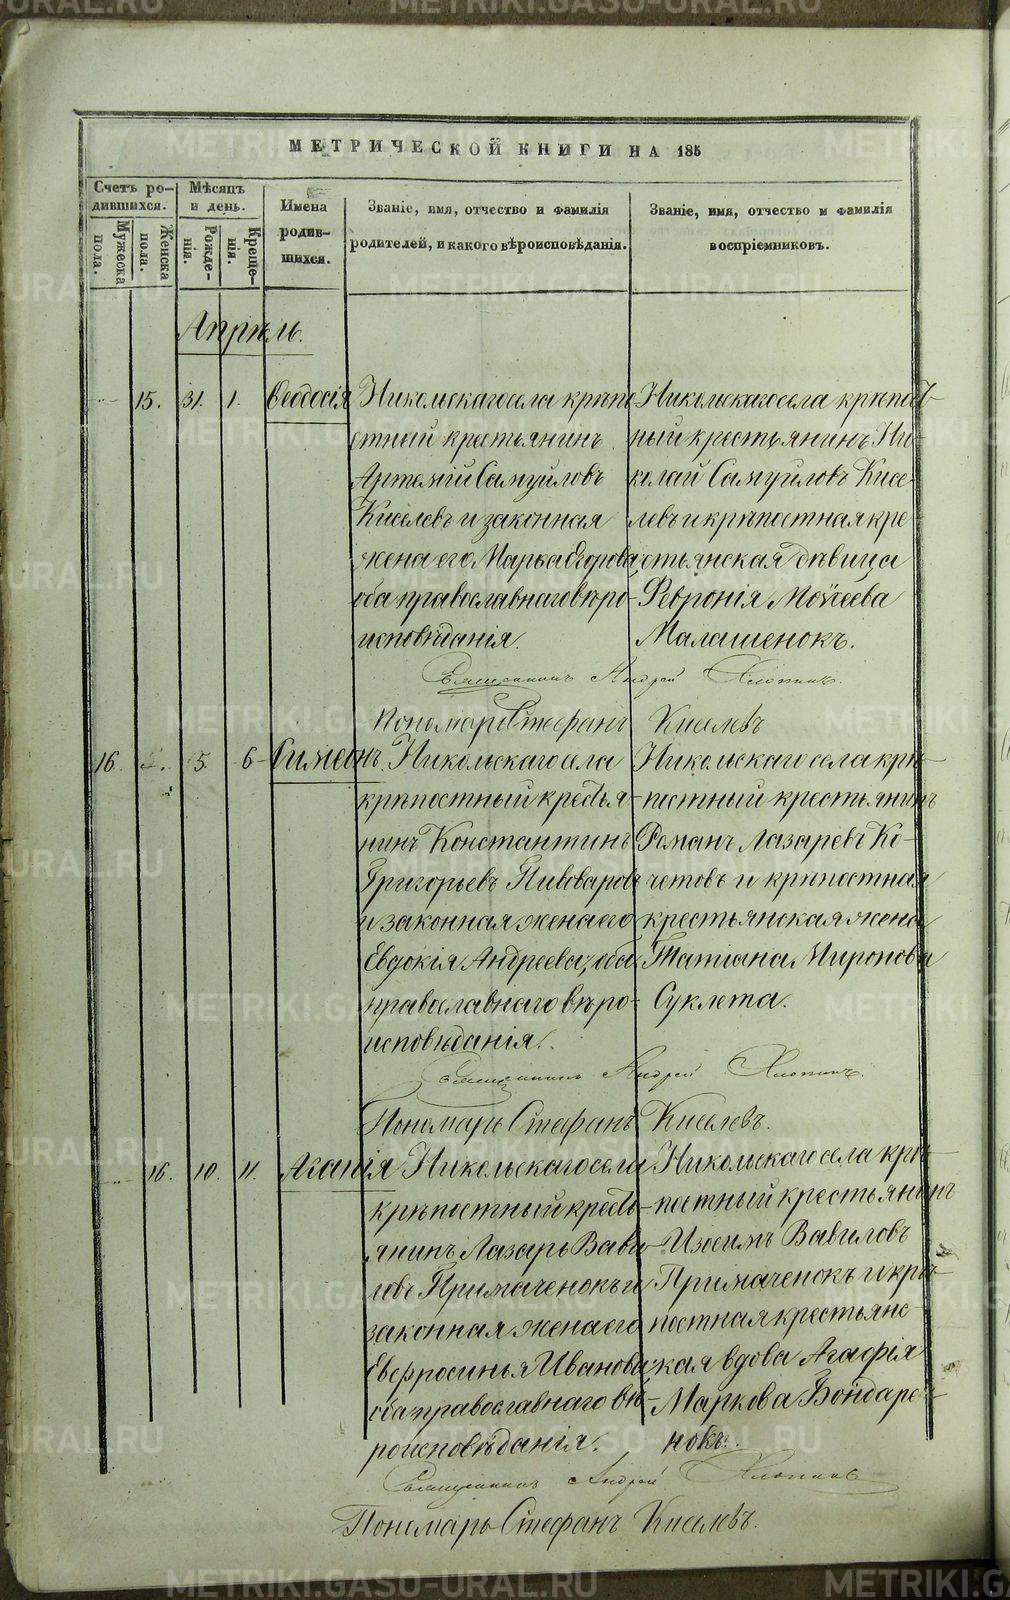 МЕТРИЧЕСКОЙ КНИГИ НА 185
Счетъ ро-
дившихся.
Мѣсяцъ
и день.
Мужеска
пола.
Женска
пола.
Рожде-
нія.
Креще-
нія.
Имена
родив-
шихся.
Званіе, имя, отчество и фамилія
родителей, и какого вѣроисповѣданія.
Званіе, имя, отчество и фамилія
воспріемниковъ.
Апрѣль.
15. 31. 1. Ѳеодосія
Никольскаго села крѣпо
стный крестьянинъ
Артемій Самуйловъ
Киселевъ и законная
жена его Марья Егорова
оба православнаго вѣро-
исповѣданія.
Никольскаго села крѣпост-
ный крестьянинъ Ни
колай Самуйловъ Кисе-
левъ и крѣпостная кре-
стьянская дѣвица
Февронія Моѵсеева
Малашенокъ.
Священникъ Андрей Хлопинъ.
Пономарь Стефанъ Киселевъ
16. 5. 6 Симеонъ.
Никольскаго села
крѣпостный крестья-
нинъ Константинъ
Григорьевъ Пивоваровъ
и законная жена его
Евдокія Андреева, оба
православнаго вѣро-
исповѣданія.
Никольскаго села крѣ-
постный крестьянинъ
Романъ Лазаревъ Ко-
четовъ и крѣпостная
крестьянская жена
Татіана Миронова
Суклета.
Священникъ Андрей Хлопинъ.
Пономарь Стефанъ Киселевъ.
16. 10. 11. Агапія
Никольскаго села
крѣпостный кресть-
янинъ Лазарь Вави-
ловъ Примаченокъ и
законная жена его
Евфросинья Иванова
оба православнаго вѣ-
роисповѣданія.
Никольскаго села крѣ-
постный крестьянинъ
Изосимъ Вавиловъ
Примаченокъ и крѣ-
постная крестьянс-
кая вдова Агафія
Маркова Бондаре-
нокъ.
Священникъ Андрей Хлопинъ
Пономарь Стефанъ Киселевъ.
METRIKI.GASO-URAL.RU